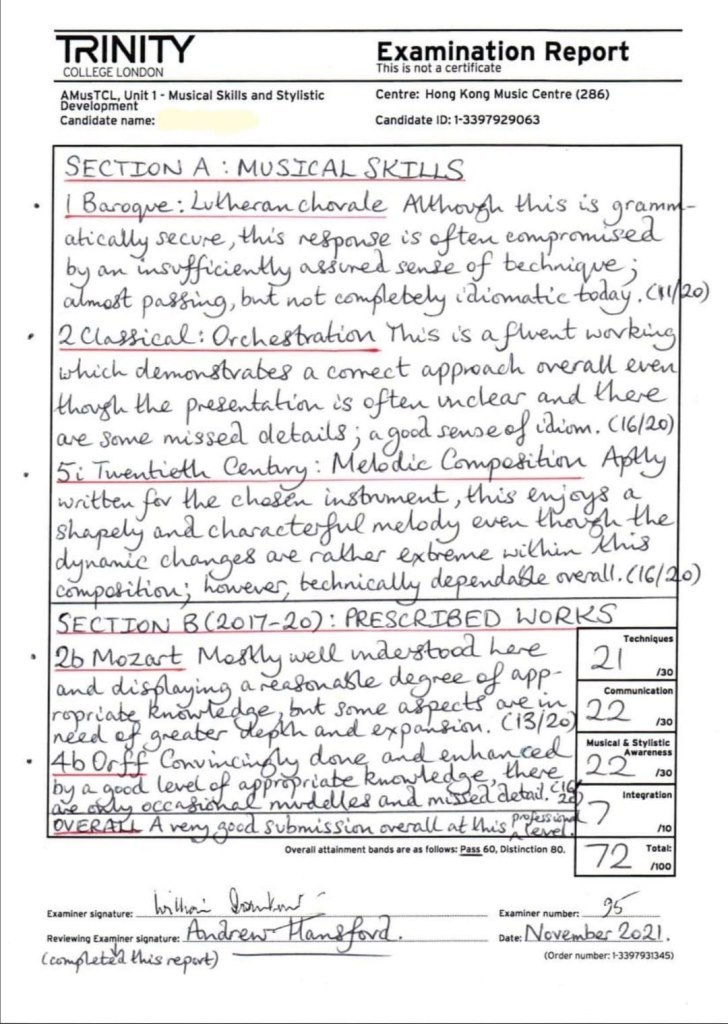 TRINITY
COLLEGE LONDON
Examination Report
This is not a certificate
AMusTCL, Unit 1 - Musical Skills and Stylistic
Development
Candidate name:
Centre: Hong Kong Music Centre (286)
Candidate ID: 1-3397929063
SECTION A : MUSICAL SKILLS
1 Baroque: Lutheran chorale Although this is gramm-
atically secure, this response is often compromised
by an insufficiently assured sense of technique;
almost passing, but not completely idiomatic today. (11/20)
2 Classical: Orchestration This is a fluent working
which demonstrates a correct approach overall even
though the presentation is often unclear and there
are some missed details; a good sense of idiom. (16/20)
5i Twentieth Century: Melodic Composition Aptly
written for the chosen instrument, this enjoys a
shapely and characterful melody even though the
dynamic changes are rather extreme within this
composition; however, technically dependable overall. (16/20)
SECTION B (2017-20): PRESCRIBED WORKS
2b Mozart Mostly well understood here
and displaying a reasonable degree of app-
ropriate knowledge, but some aspects are in
need of greater depth and expansion. (13/20)
4b Orff Convincingly done, and enhanced
by a good level of appropriate knowledge, there
are only occasional muddles and missed detail. (16/20)
OVERALL A very good submission overall at this professional level.
Techniques
21 /30
Communication
22 /30
Musical & Stylistic
Awareness
22 /30
Integration
7 /10
Total:
72 /100
Overall attainment bands are as follows: Pass 60, Distinction 80.
Examiner signature:
Examiner number: 95
Reviewing Examiner signature: Andrew Hansford.
Date: November 2021.
(completed this report)
(Order number: 1-3397931345)